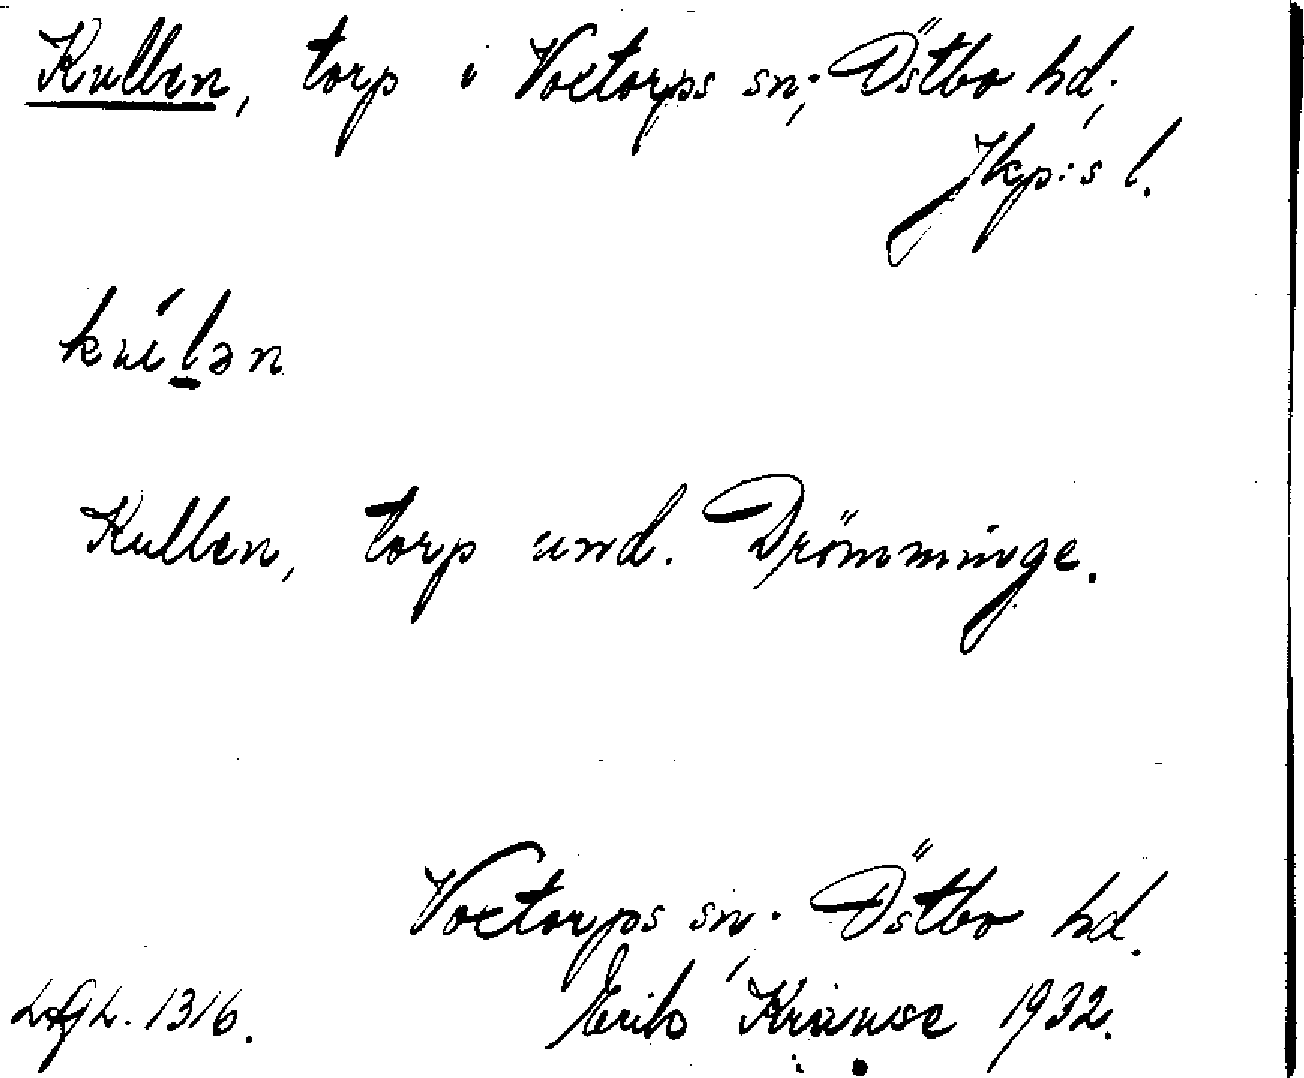 Kullen, torp i Voxtorps sn; Östbo hd;
Jkp:s l.
kúlən
Kullen, torp und. Drömminge.
Voxtorps sn; Östbo hd.
Erik Krause 1932.
1316.